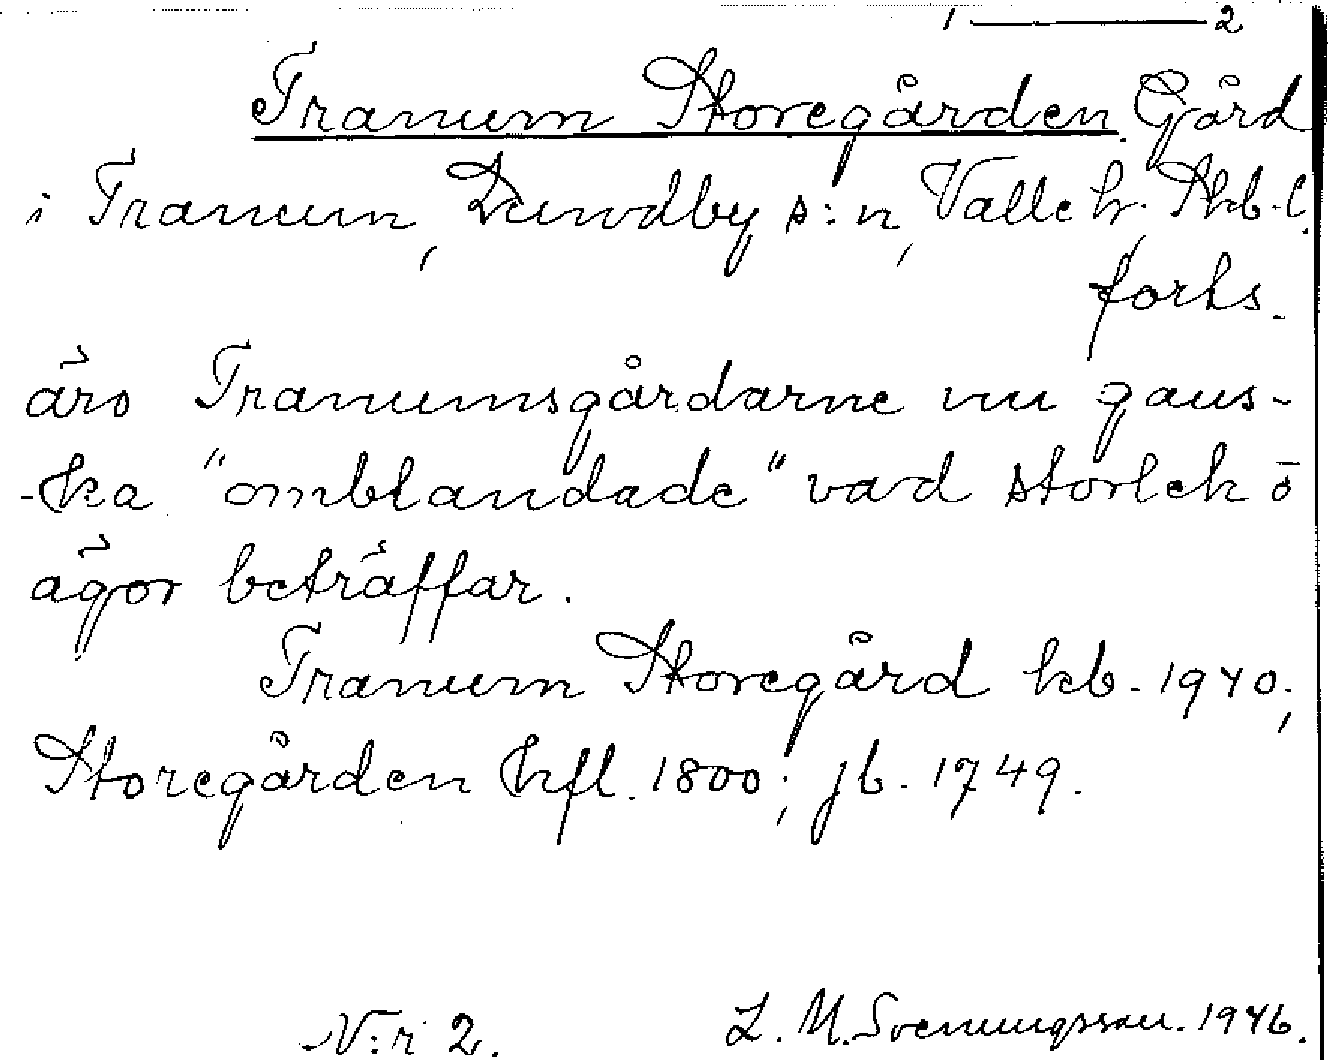 1 ——— 2
Tranum Storegården. Gård
i Tranum, Dundby s:n, Valle h. Skb. l.
forts.
äro Tranumsgårdarne nu gans-
-ska "omblandade" vad storlek ō
ägor beträffar.
Tranum Storegård kb. 1940;
Storegården hfl. 1800; jb. 1749.
N:r 2. L. M. Svenungsson. 1946.